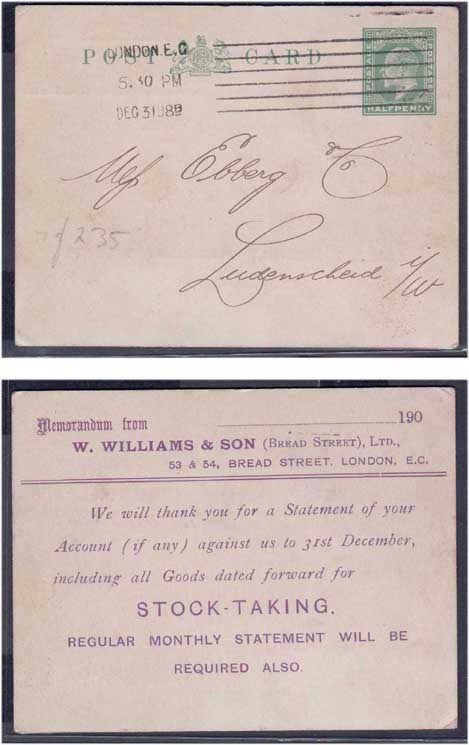 LONDON.E.C
POST CARD
5.30 PM
DEC 31
POSTAGE POSTAGE
HALFPENNY
Mess Ebberg & C
235
Ludenscheid i/W
Memorandum from 190
W. WILLIAMS & SON (BREAD STREET), LTD.,
53 & 54, BREAD STREET, LONDON, E.C.
We will thank you for a Statement of your
Account (if any) against us to 31st December,
including all Goods dated forward for
STOCK-TAKING.
REGULAR MONTHLY STATEMENT WILL BE
REQUIRED ALSO.